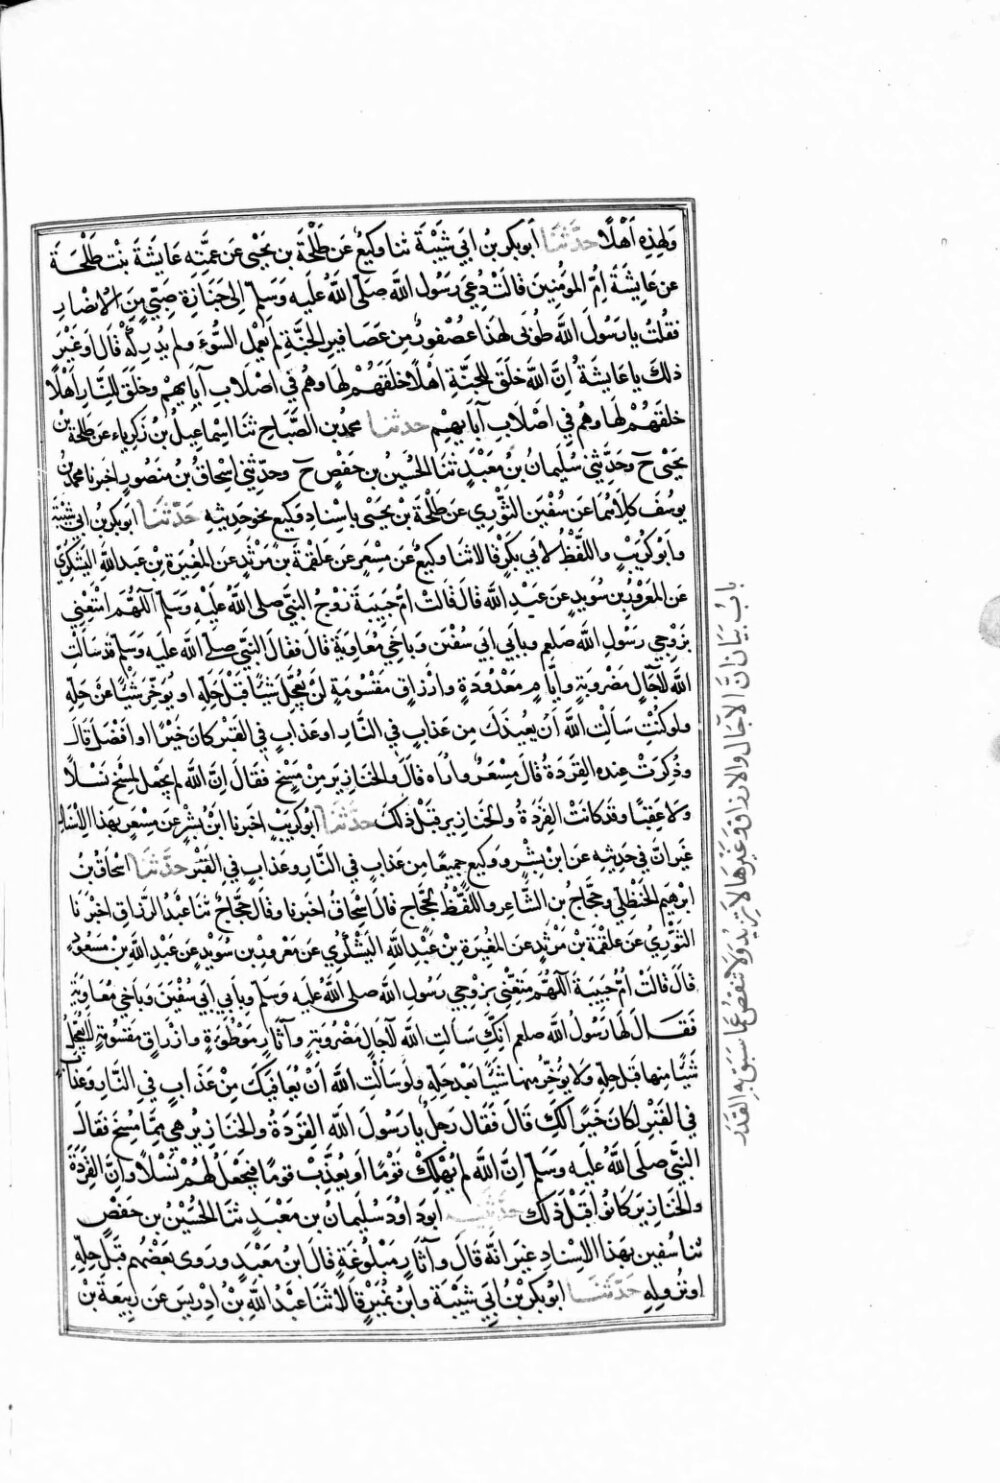 ولهذه اهلا حدثنا ابو بكر بن ابي شيبة ثنا وكيع عن طلحة بن يحيى عن عمته عايشة بنت طلحة
عن عايشة ام المؤمنين قالت دعي رسول الله صلى الله عليه وسلم الى جنازة صبي من الانصار
فقلت يا رسول الله طوبى لهذا عصفور من عصافير الجنة لم يعمل السوء ولم يدركه قال او غير
ذلك يا عايشة ان الله خلق للجنة اهلا خلقهم لها وهم في اصلاب آبايهم وخلق للنار اهلا
خلقهم لها وهم في اصلاب آبايهم حدثنا محمد بن الصباح ثنا اسماعيل بن زكرياء عن طلحة بن
يحيى ح وحدثني سليمان بن معبد ثنا الحسين بن حفص ح وحدثني اسحاق بن منصور اخبرنا محمد بن
يوسف كلاهما عن سفين الثوري عن طلحة بن يحيى باسناد وكيع نحو حديثه حدثنا ابو بكر بن ابي شيبة
وابو كريب واللفظ لابي بكر قالا ثنا وكيع عن مسعر عن علقمة بن مرثد عن المغيرة بن عبد الله اليشكري
عن المعرور بن سويد عن عبد الله قال قالت ام حبيبة زوج النبي صلى الله عليه وسلم اللهم امتعني
بزوجي رسول الله صلعم وبابي ابي سفين وباخي معاوية قال فقال النبي صلى الله عليه وسلم قد سالت
الله لآجال مضروبة وايام معدودة وارزاق مقسومة لن يعجل شيا قبل حله او يوخر شيا عن حله
ولو كنت سالت الله ان يعيذك من عذاب في النار او عذاب في القبر كان خيرا او افضل قال
وذكرت عنده القردة قال مسعر واراه قال والخنازير من مسخ فقال ان الله لم يجعل لمسخ نسلا
ولا عقبا وقد كانت القردة والخنازير قبل ذلك حدثنا ابو كريب اخبرنا ابن بشر عن مسعر بهذا الاسناد
غير ان في حديثه عن ابن بشر ووكيع جميعا من عذاب في النار وعذاب في القبر حدثنا اسحاق بن
ابرهيم الحنظلي وحجاج بن الشاعر واللفظ لحجاج قال اسحاق اخبرنا وقال حجاج ثنا عبد الرزاق اخبرنا
الثوري عن علقمة بن مرثد عن المغيرة بن عبد الله اليشكري عن معرور بن سويد عن عبد الله بن مسعود
قال قالت ام حبيبة اللهم متعني بزوجي رسول الله صلى الله عليه وسلم وبابي ابي سفين وباخي معاوية
فقال لها رسول الله صلعم انك سالت الله لآجال مضروبة وآثار موطوءة وارزاق مقسومة لا يعجل
شيا منها قبل حله ولا يوخر منها شيا بعد حله ولو سالت الله ان يعافيك من عذاب في النار وعذاب
في القبر لكان خيرا لك قال فقال رجل يا رسول الله القردة والخنازير هي مما مسخ فقال
النبي صلى الله عليه وسلم ان الله لم يهلك قوما او يعذب قوما فيجعل لهم نسلا وان القردة
والخنازير كانوا قبل ذلك حدثنيه ابو داود سليمان بن معبد ثنا الحسين بن حفص
ثنا سفين بهذا الاسناد غير انه قال وآثار مبلوغة قال ابن معبد وروى بعضهم قبل حله
اي نزوله حدثنا ابو بكر بن ابي شيبة وابن نمير قالا ثنا عبد الله بن ادريس عن ربيعة بن
باب بيان ان الآجال والارزاق وغيرها لا تزيد ولا تنقص عما سبق به القدر